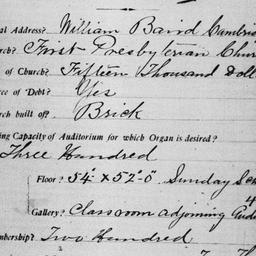 al Address? William Baird Cumbris
rch? First Presbyterian Chur
of Church? Fifteen Thousand Doll
ree of Debt? Yes
rch built of? Brick
ing Capacity of Auditorium for which Organ is desired?
Three Hundred
Floor? 54' x 52'-0" Sunday Sch
Gallery? Classroom adjoining
mbership? Two Hundred